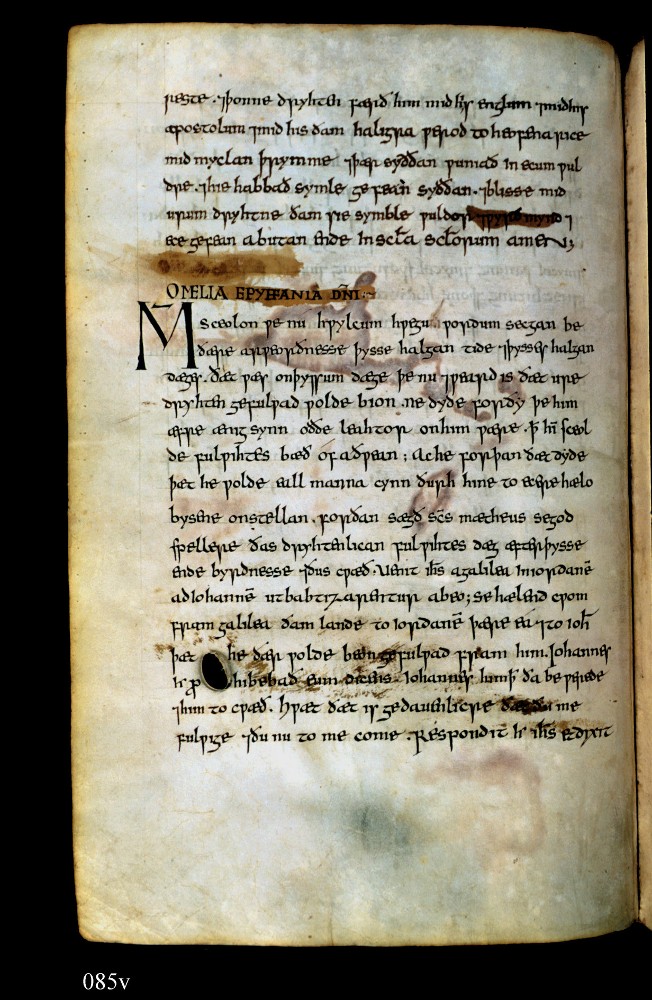 reste. ⁊þonne dryhten færið him mid his englum ⁊mid his
apostolum ⁊mid his ðam haligra ƿerod to heofena rice
mid myclan þrymme ⁊þær syððan ƿuniað in ecum ƿul
dre. ⁊hie habbað symle gefean syððan. ⁊blisse mid
urum dryhtne ðam sie symble ƿuldor ⁊ƿyrðmynd ⁊
ece gefean abutan ende in scła scłorum amen;
OMELIA EPYFFANIA DÑI:~
Msceolon ƿe nu hƿylcum hƿegu. ƿordum secgan be
ðære arƿeorðnesse þysse halgan tide ⁊þysses halgan
dæges. ðæt ƿæs on þyssum dæge þe nu ⁊ƿeard is ðæt ure
dryhten gefulƿad ƿolde bion. ne dyde forðy þe him
æfre ænig synn oððe leahtor on him ƿære. ꝥ hīe sceol
de fulƿihtes bæð of aðƿean; Ac he forþan ðæt dyde
þæt he ƿolde eall manna cynn ðurh hine to ecere hælo
bysene onstellan. forðan sægð scs̄ matheus ⁊egod
spellere ðas dryhtenlican fulƿihtes dæg æfter þysse
endebyrdnesse ⁊ðus cƿæð. Uenit ihs̄ a galilea in iordanē
ad iohannē ut babtizarentur ab eo; se hælend cƿom
fram galilea ðam lande to iordanē þære ea ⁊to ioh̄
þæt he ðær ƿolde beon gefulƿad fram him. Iohannes
hibebad eum dicens. Iohannes him þa beƿerede
⁊him to cƿæð. Hƿæt ðæt is gedafenlicre ðæt ðu me
fulƿige ⁊ðu nu to me come. Respondit ihs̄ et dixit